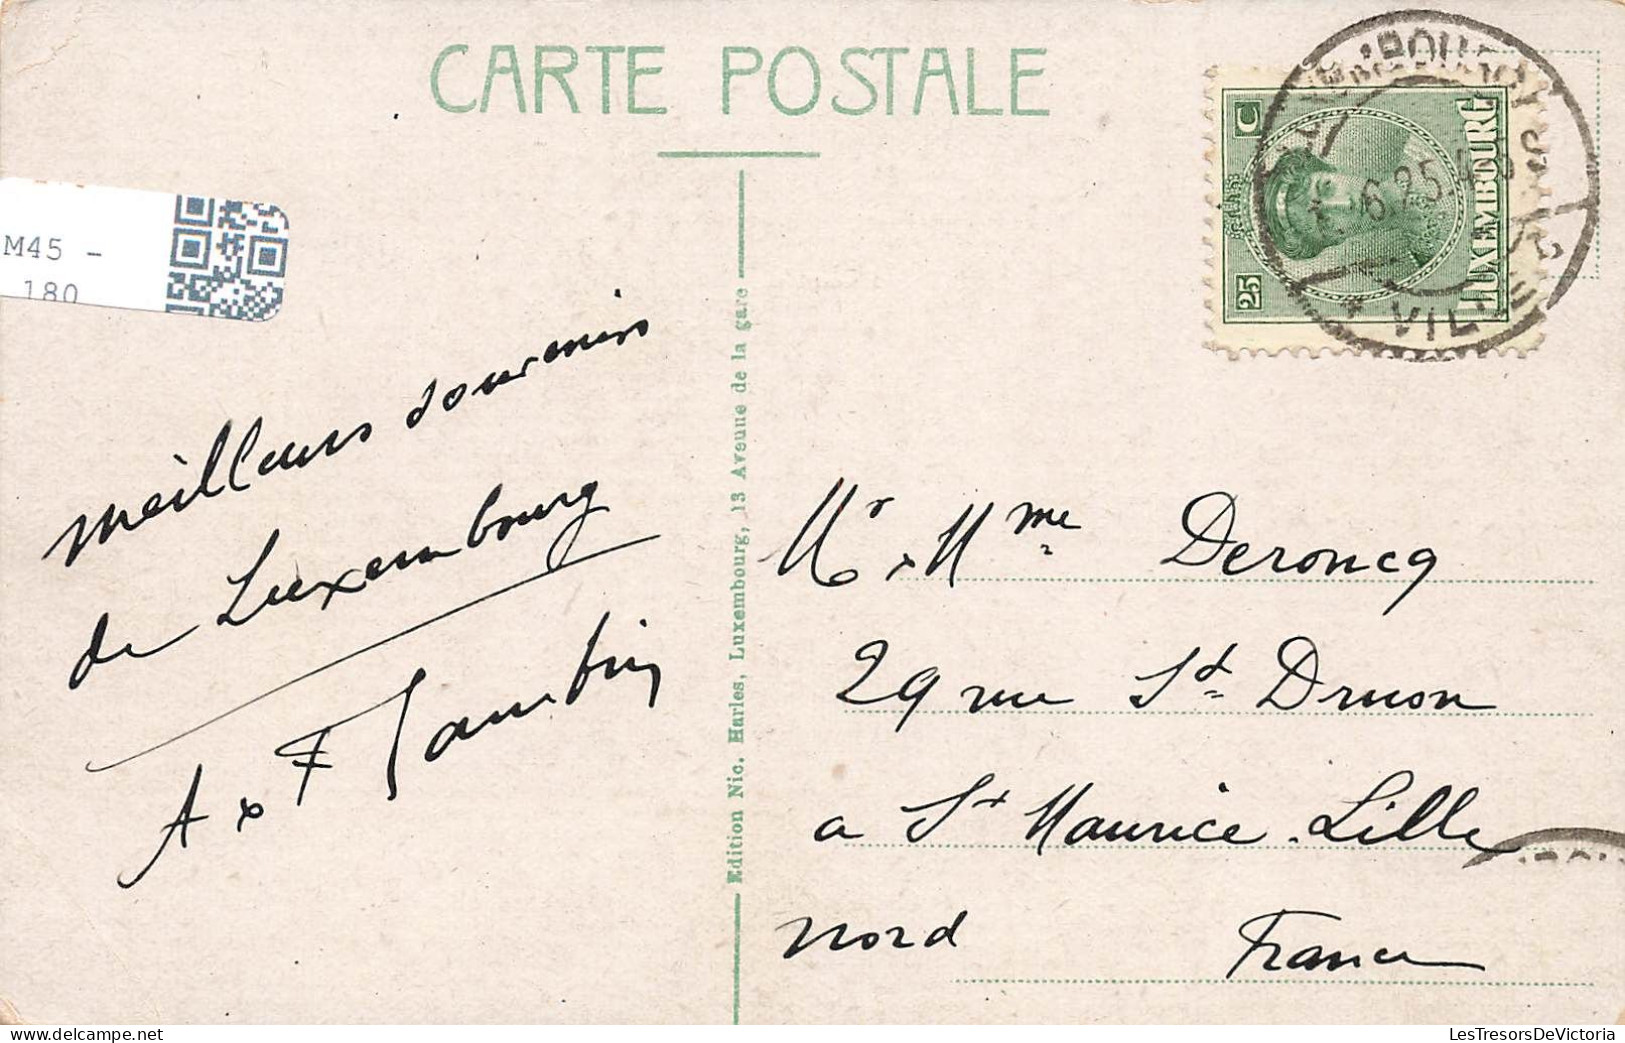 CARTE POSTALE
M45 -
180
C
25
LUXEMBOURG
6.25.
meilleurs souvenirs
de Luxembourg
A x F
Edition Nic. Harles, Luxembourg, 13 Avenue de la gare
Mr x Mme Deroncq
29 rue St Druon
a St Maurice Lille
Nord France
LesTresorsDeVictoria